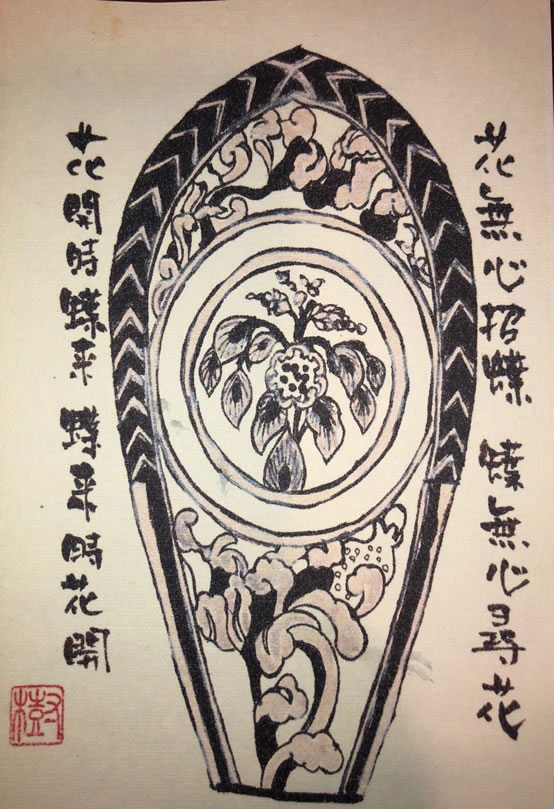 花無心招蝶 蝶無心尋花
花開時蝶来 蝶来時花開
樹